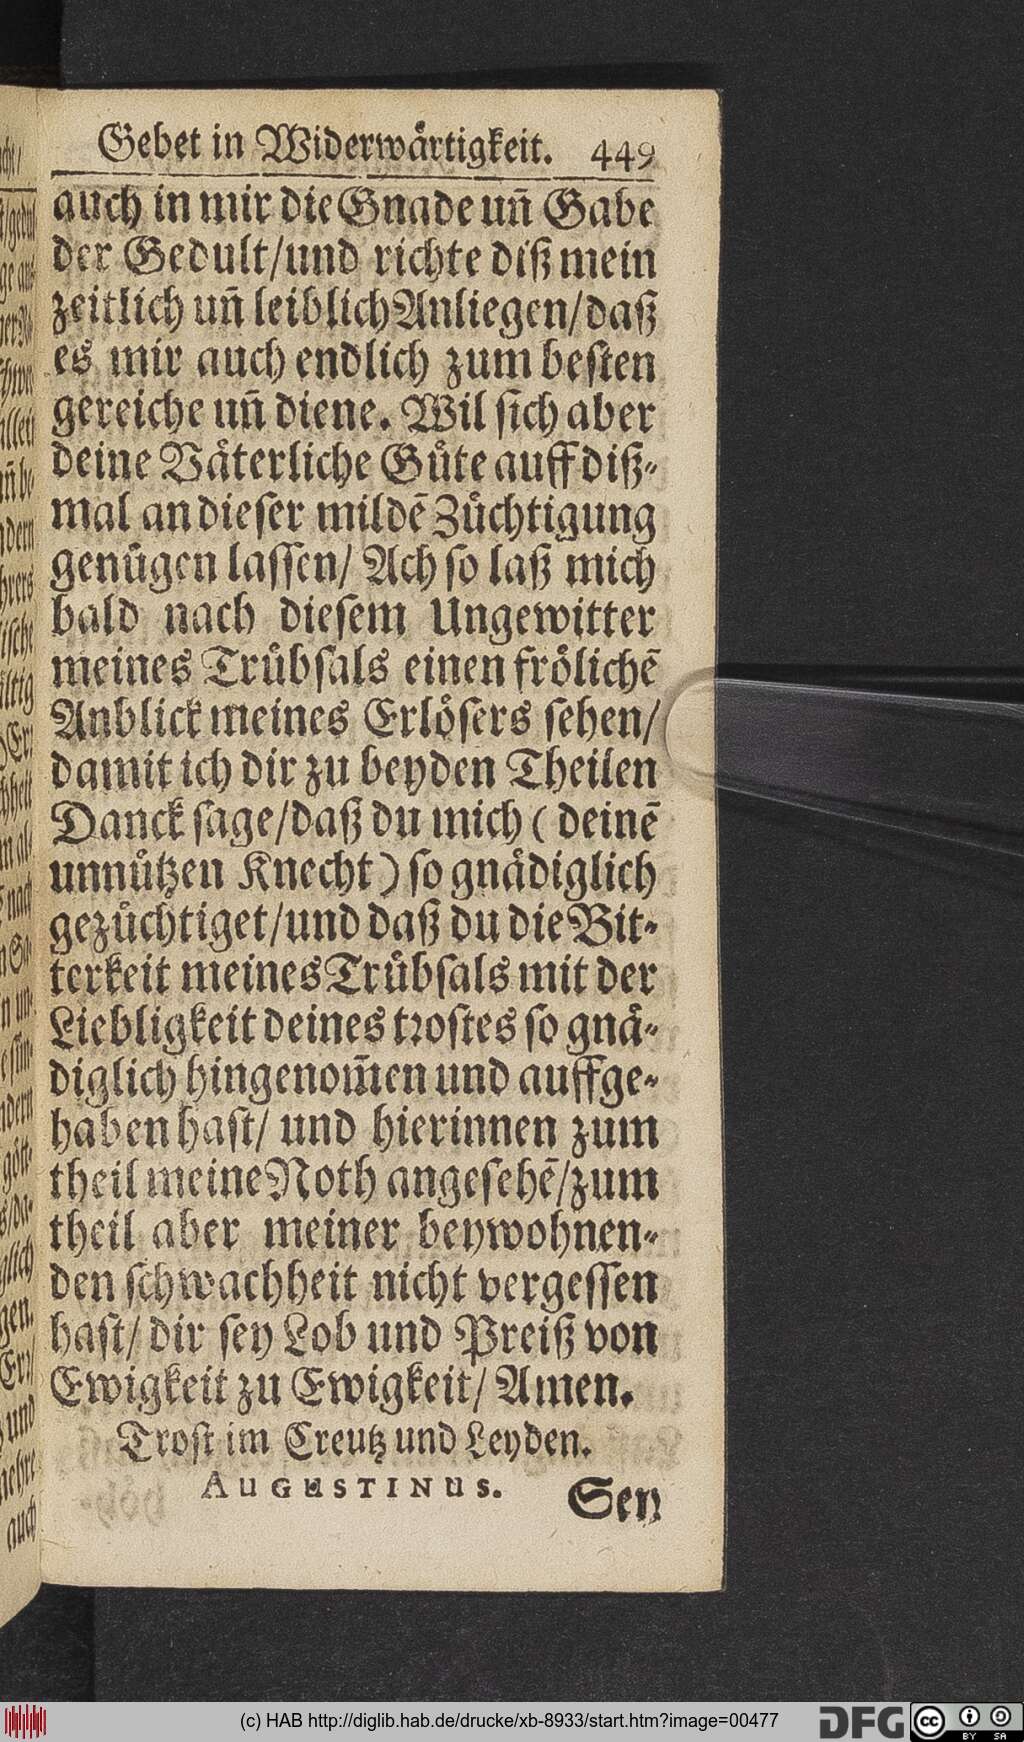 Gebet in Widerwaͤrtigkeit. 449
auch in mir die Gnade un̄ Gabe
der Gedult/und richte diß mein
zeitlich un̄ leiblich Anliegen/daß
es mir auch endlich zum besten
gereiche un̄ diene. Wil sich aber
deine Vaͤterliche Guͤte auff diß⸗
mal an dieser mildē Zuͤchtigung
genuͤgen lassen/ Ach so laß mich
bald nach diesem Ungewitter
meines Truͤbsals einen froͤlichē
Anblick meines Erloͤsers sehen/
damit ich dir zu beyden Theilen
Danck sage/daß du mich ( deinē
unnuͤtzen Knecht ) so gnaͤdiglich
gezuͤchtiget/und daß du die Bit⸗
terkeit meines Truͤbsals mit der
Liebligkeit deines trostes so gnaͤ⸗
diglich hingenom̄en und auffge⸗
haben hast/ und hierinnen zum
theil meine Noth angesehē/zum
theil aber meiner beywohnen⸗
den schwachheit nicht vergessen
hast/ dir sey Lob und Preiß von
Ewigkeit zu Ewigkeit/ Amen.
Trost im Creutz und Leyden.
AUGUSTINUS.
Sey
(c) HAB http://diglib.hab.de/drucke/xb-8933/start.htm?image=00477
DFG
cc BY SA